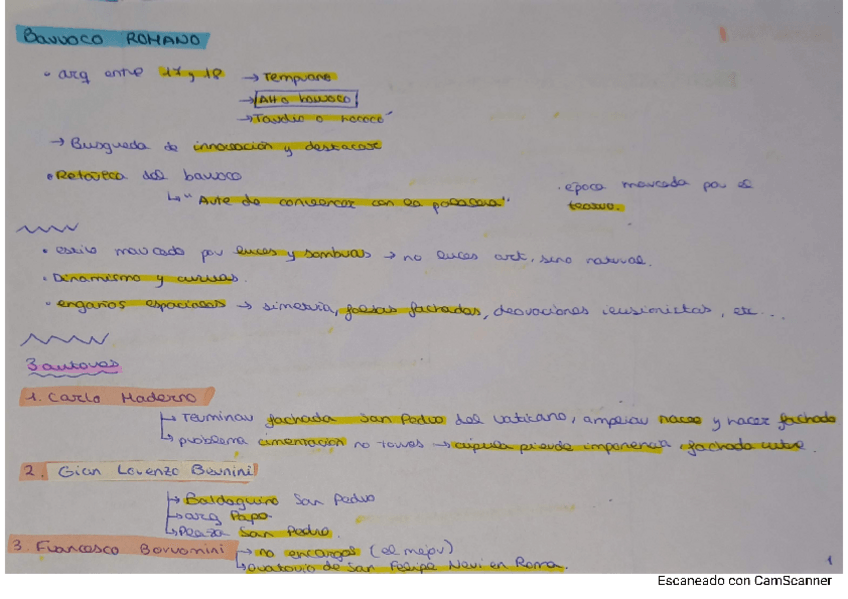 Barroco ROMANO
• arq entre 17 y 18 → Temprano
→ Alto barroco
→ Tardio o rococó
→ Busqueda de innovación y destacar
• Retórica del barroco
↳ "Arte de convencer con la palabra"
· epoca marcada por el teatro.
• estilo marcado por luces y sombras → no luces art, sino natural.
• Dinamismo y curvas.
• engaños espaciales → simetria, falsas fachadas, decoraciones ilusionistas, etc...
3 autores
1. Carlo Maderno
↳ Terminar fachada San Pedro del Vaticano, ampliar nave y hacer fachada
↳ problema cimentación no torres → cúpula pierde imponencia, fachada cubre.
2. Gian Lorenzo Bernini
↳ Baldaquino San Pedro
↳ arq Papa
↳ Plaza San Pedro.
3. Francesco Borromini → no encargos (el mejor)
↳ oratorio de San Felipe Neri en Roma.
1
Escaneado con CamScanner